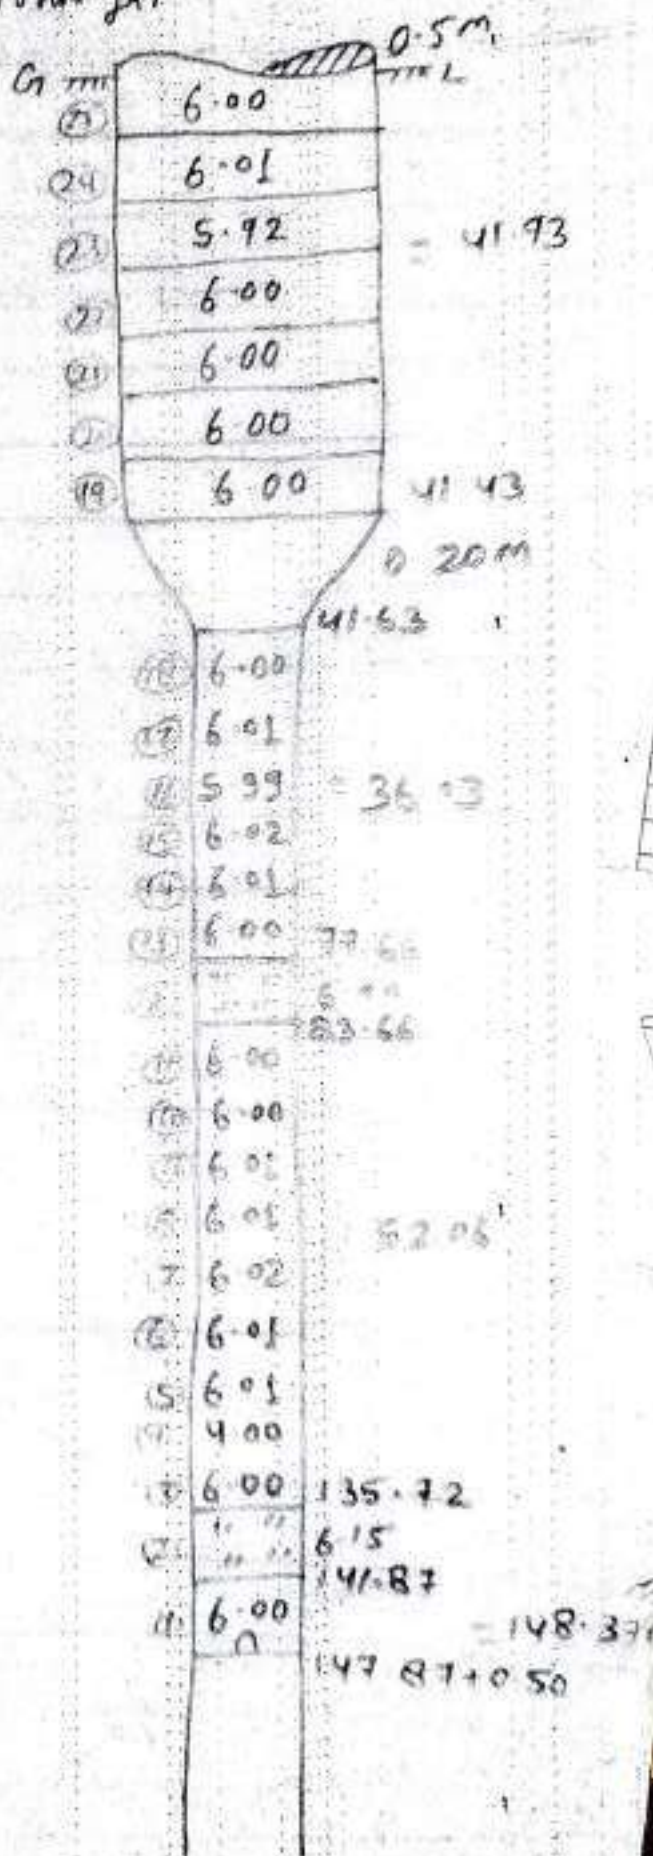 0.5 m
G L
6.00
24 6.01
23 5.92 = 41.93
6.00
6.00
6.00
19 6.00 41.43
0.20 m
41.63
6.00
17 6.01
5.99 = 36.03
15 6.02
14 6.01
6.00 77.66
83.66
6.00
10 6.00
6.01
6.01 52.06
7 6.02
6 6.01
5 6.01
4.00
6.00 135.72
2 6.15
141.87
6.00 = 148.37
147.87+0.50